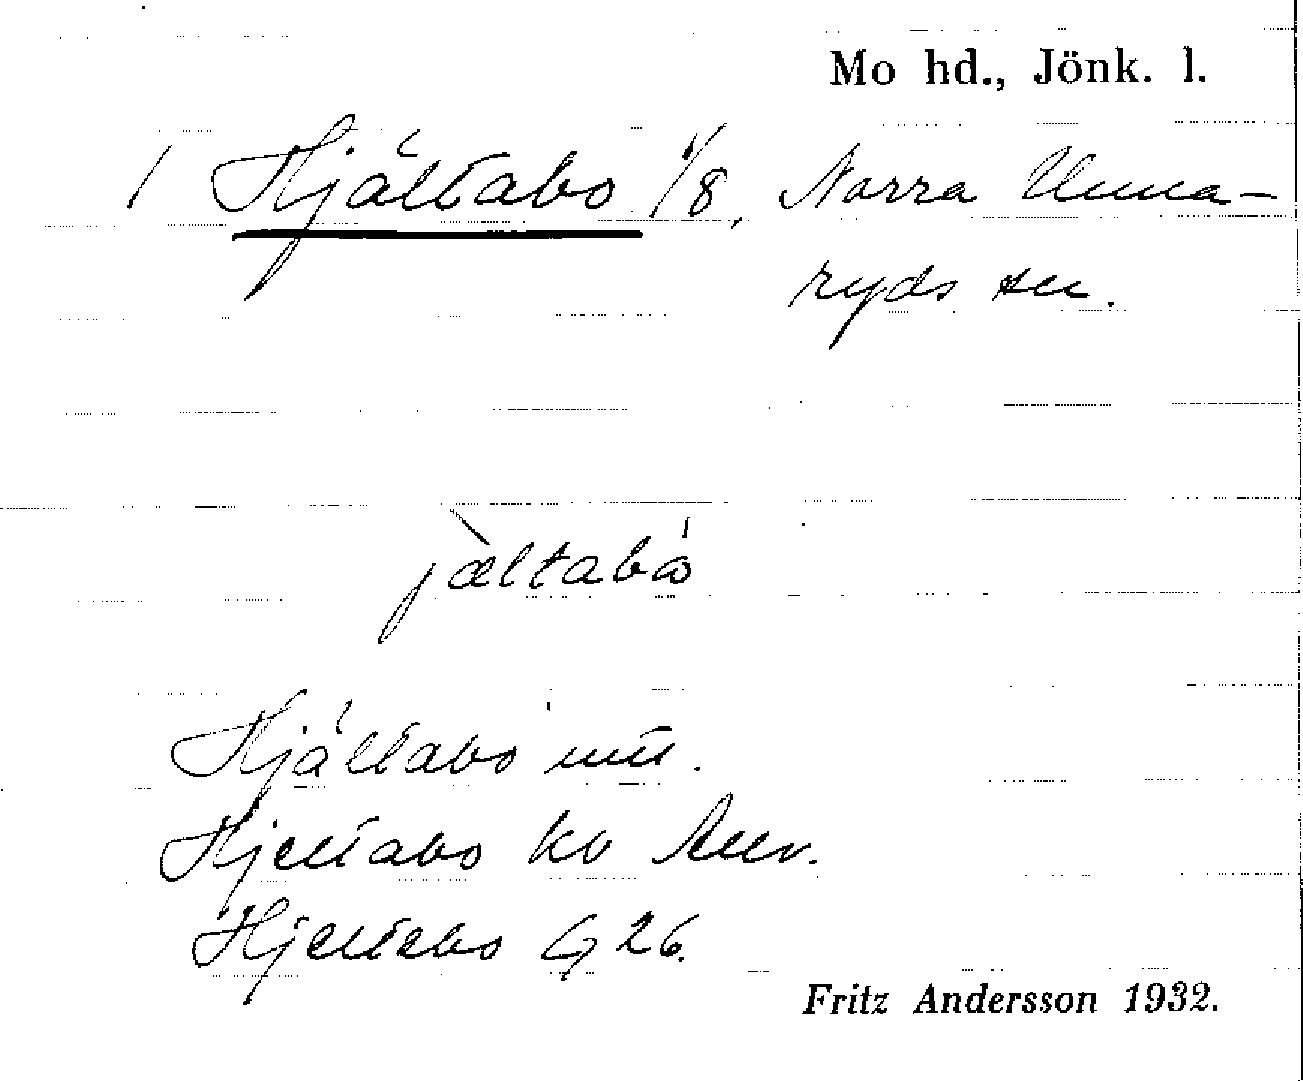 Mo hd., Jönk. l.
1 Hjältabo 1/8, Norra Unna-
ryds sn.
jæ̀ltabó
Hjältabo
Hjeltabo kb
Hjeltebo G 26.
Fritz Andersson 1932.